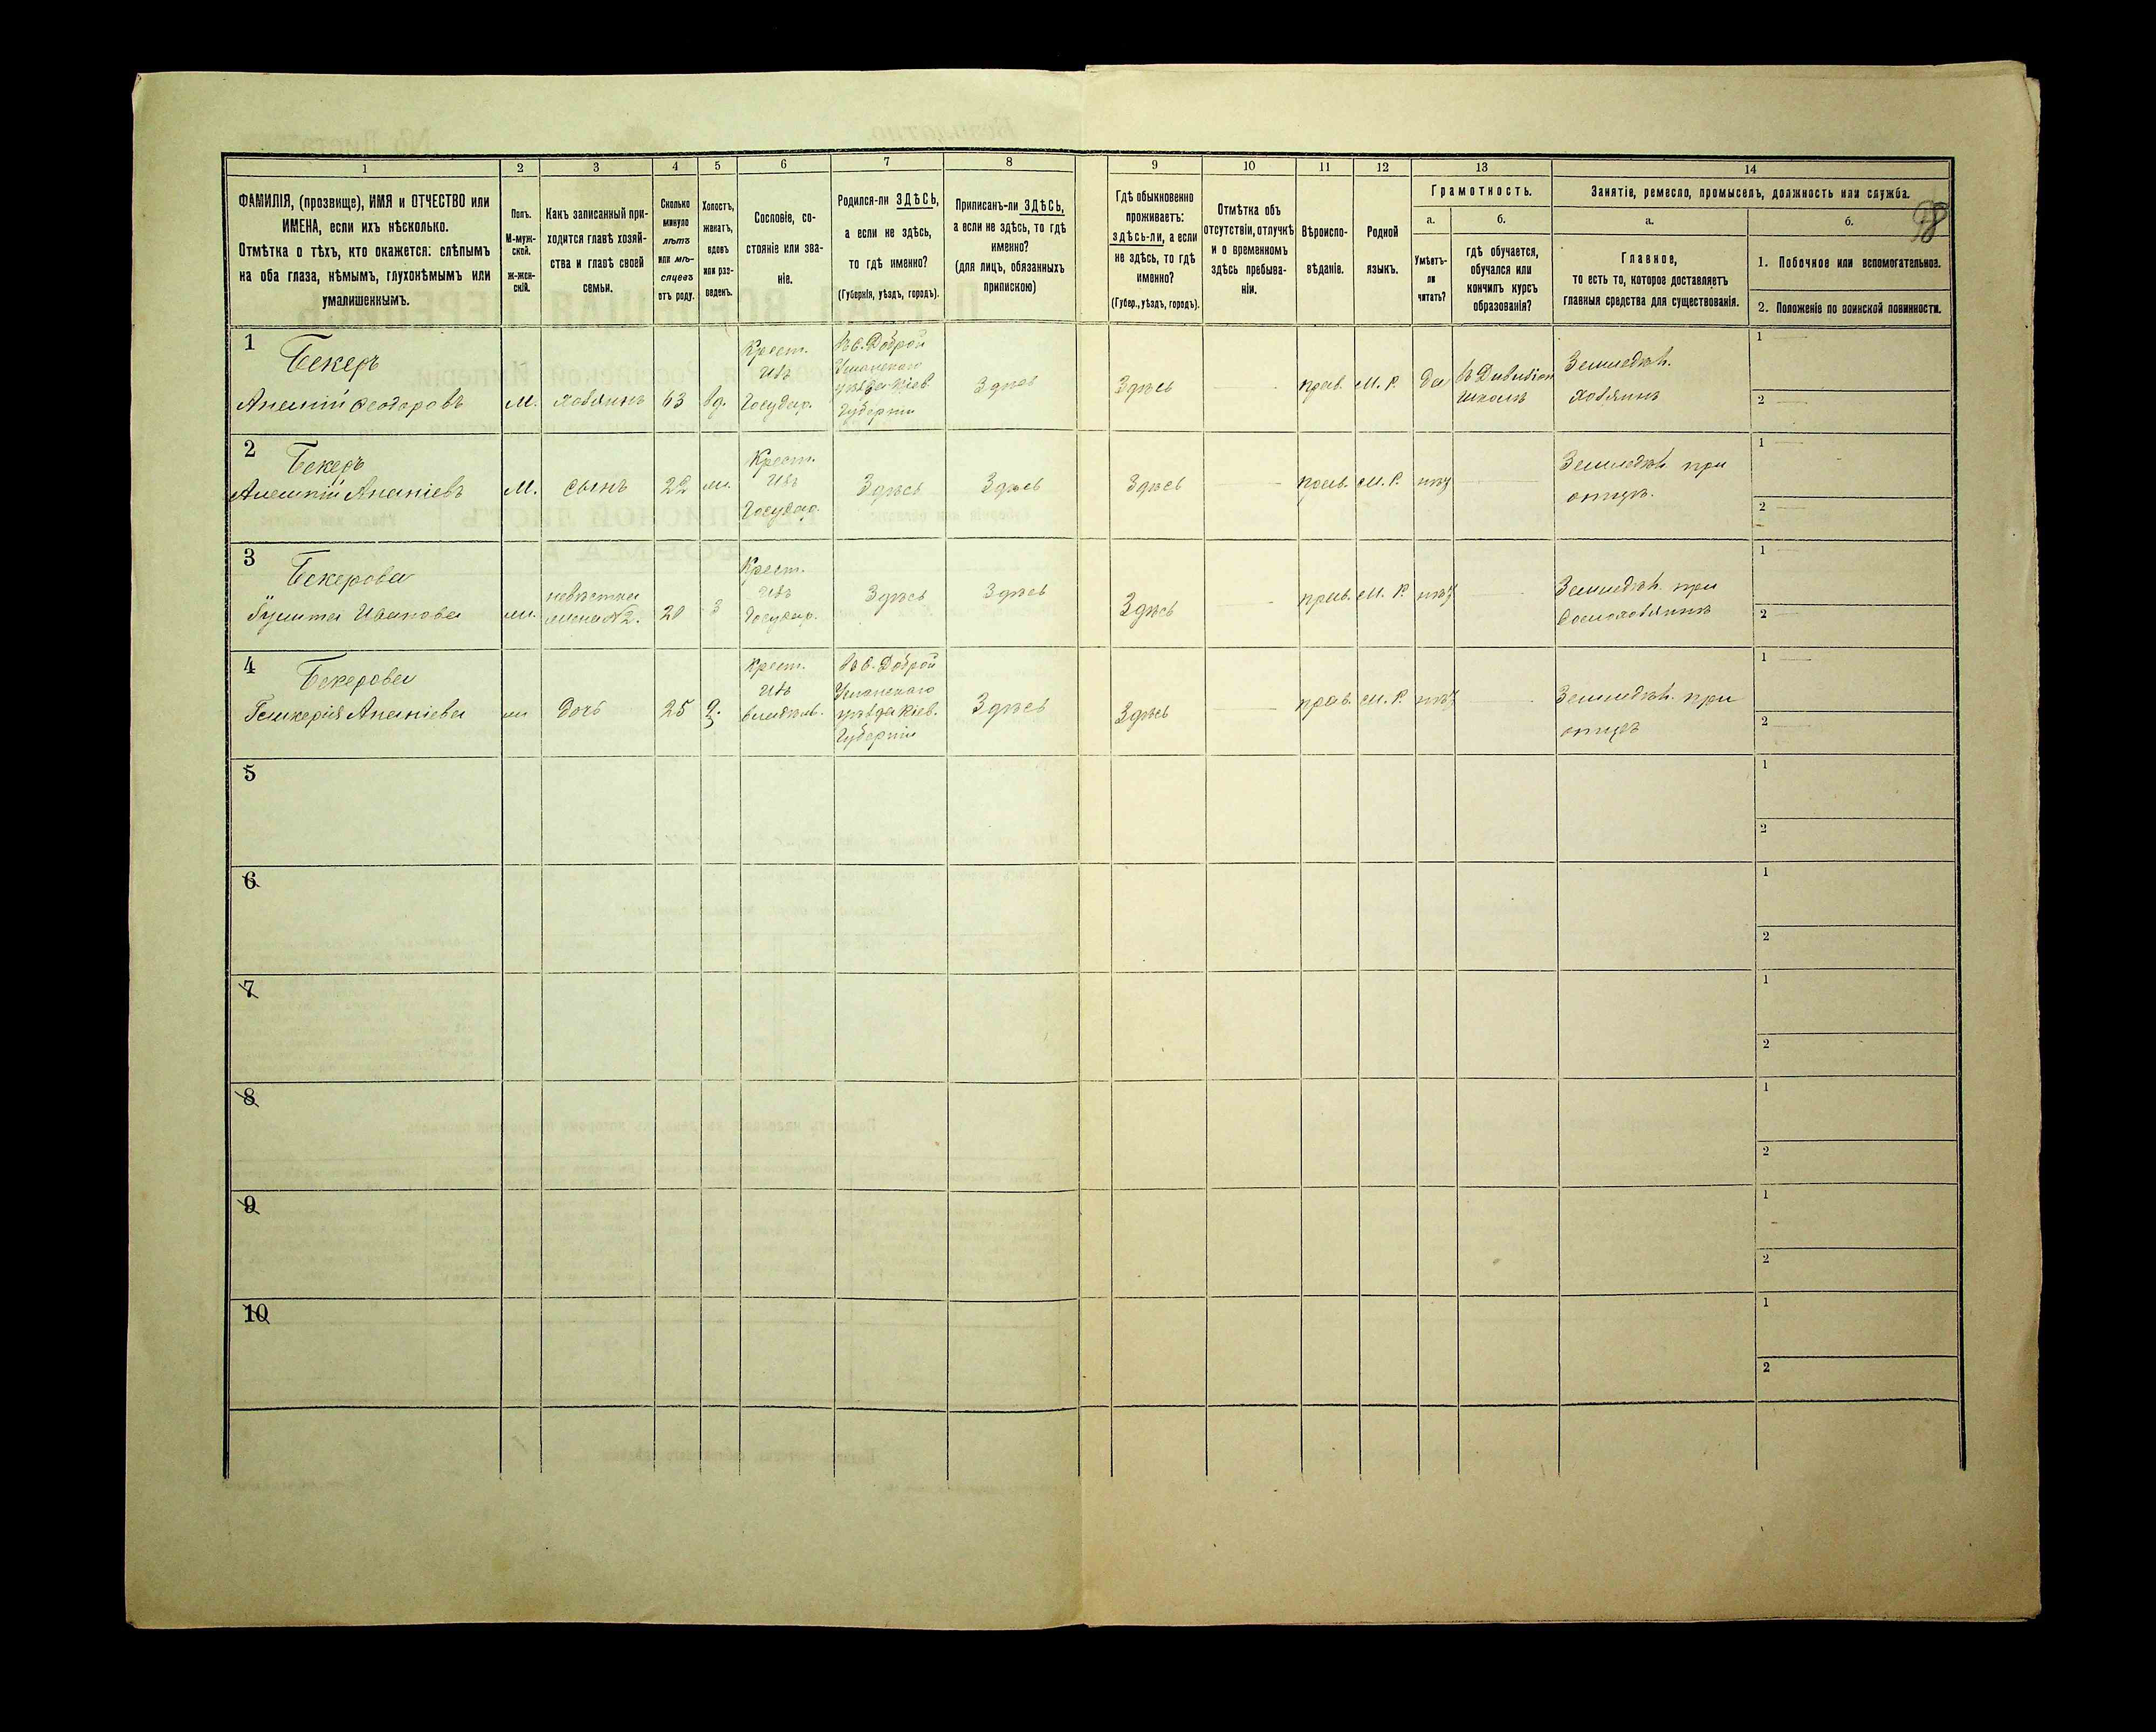 1 2 3 4 5 6 7 8 9 10 11 12 13 14
ФАМИЛІЯ, (прозвище), ИМЯ и ОТЧЕСТВО или
ИМЕНА, если ихъ нѣсколько.
Отмѣтка о тѣхъ, кто окажется: слѣпымъ
на оба глаза, нѣмымъ, глухонѣмымъ или
умалишеннымъ.
Полъ.
М-муж-
ской.
ж-жен-
скій.
Какъ записанный при-
ходится главѣ хозяй-
ства и главѣ своей
семьи.
Сколько
минуло
лѣтъ
или мѣ-
сяцевъ
отъ роду.
Холостъ,
женатъ,
вдовъ
или раз-
веденъ.
Сословіе, со-
стояніе или зва-
ніе.
Родился-ли ЗДѢСЬ,
а если не здѣсь,
то гдѣ именно?
(Губернія, уѣздъ, городъ).
Приписанъ-ли ЗДѢСЬ,
а если не здѣсь, то гдѣ
именно?
(для лицъ, обязанныхъ
припискою)
Гдѣ обыкновенно
проживаетъ:
здѣсь-ли, а если
не здѣсь, то гдѣ
именно?
(Губер., уѣздъ, городъ).
Отмѣтка объ
отсутствіи, отлучкѣ
и о временномъ
здѣсь пребыва-
ніи.
Вѣроиспо-
вѣданіе.
Родной
языкъ.
Грамотность.
а.
Умѣетъ-
ли
читать?
б.
гдѣ обучается,
обучался или
кончилъ курсъ
образованія?
Занятіе, ремесло, промыселъ, должность или служба.
а.
Главное,
то есть то, которое доставляетъ
главныя средства для существованія.
б.
98
1. Побочное или вспомогательное.
2. Положеніе по воинской повинности.
1
Бекеръ
Ананій Феодоровъ
М.
хозяинъ
63
вд.
Крест.
изъ
Государ.
Въ с. Доброй
Уманскаго
уѣзда Кіев
Губерніи
Здѣсь
Здѣсь
прав.
М. Р.
да
школѣ
Земледѣл.
хозяинъ
1
2
2
Бекеръ
Ананіевъ
М.
сынъ
22
Крест.
изъ
Государ.
Здѣсь
Здѣсь
Здѣсь
прав.
М. Р.
нѣт
Земледѣл. при
отцѣ.
1
2
3
Бекерова
Иванова
невѣстка
жена №2.
20
з
Крест.
изъ
Государ.
Здѣсь
Здѣсь
Здѣсь
прав.
М. Р.
нѣт
Земледѣл. при
1
2
4
Бекерова
Гликерія Ананіева
дочь
25
Крест.
изъ
Въ с. Доброй
Уманскаго
уѣзда Кіев.
Губерніи
Здѣсь
Здѣсь
прав.
М. Р.
нѣт
Земледѣл. при
отцѣ
1
2
5
1
2
6
1
2
7
1
2
8
1
2
9
1
2
10
1
2